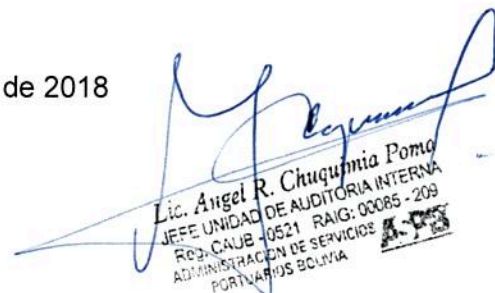 de 2018
Lic. Angel R. Chuquimia Poma
JEFE UNIDAD DE AUDITORIA INTERNA
Reg. CAUB - 0521 RAIG: 00085 - 209
ADMINISTRACION DE SERVICIOS
PORTUARIOS BOLIVIA